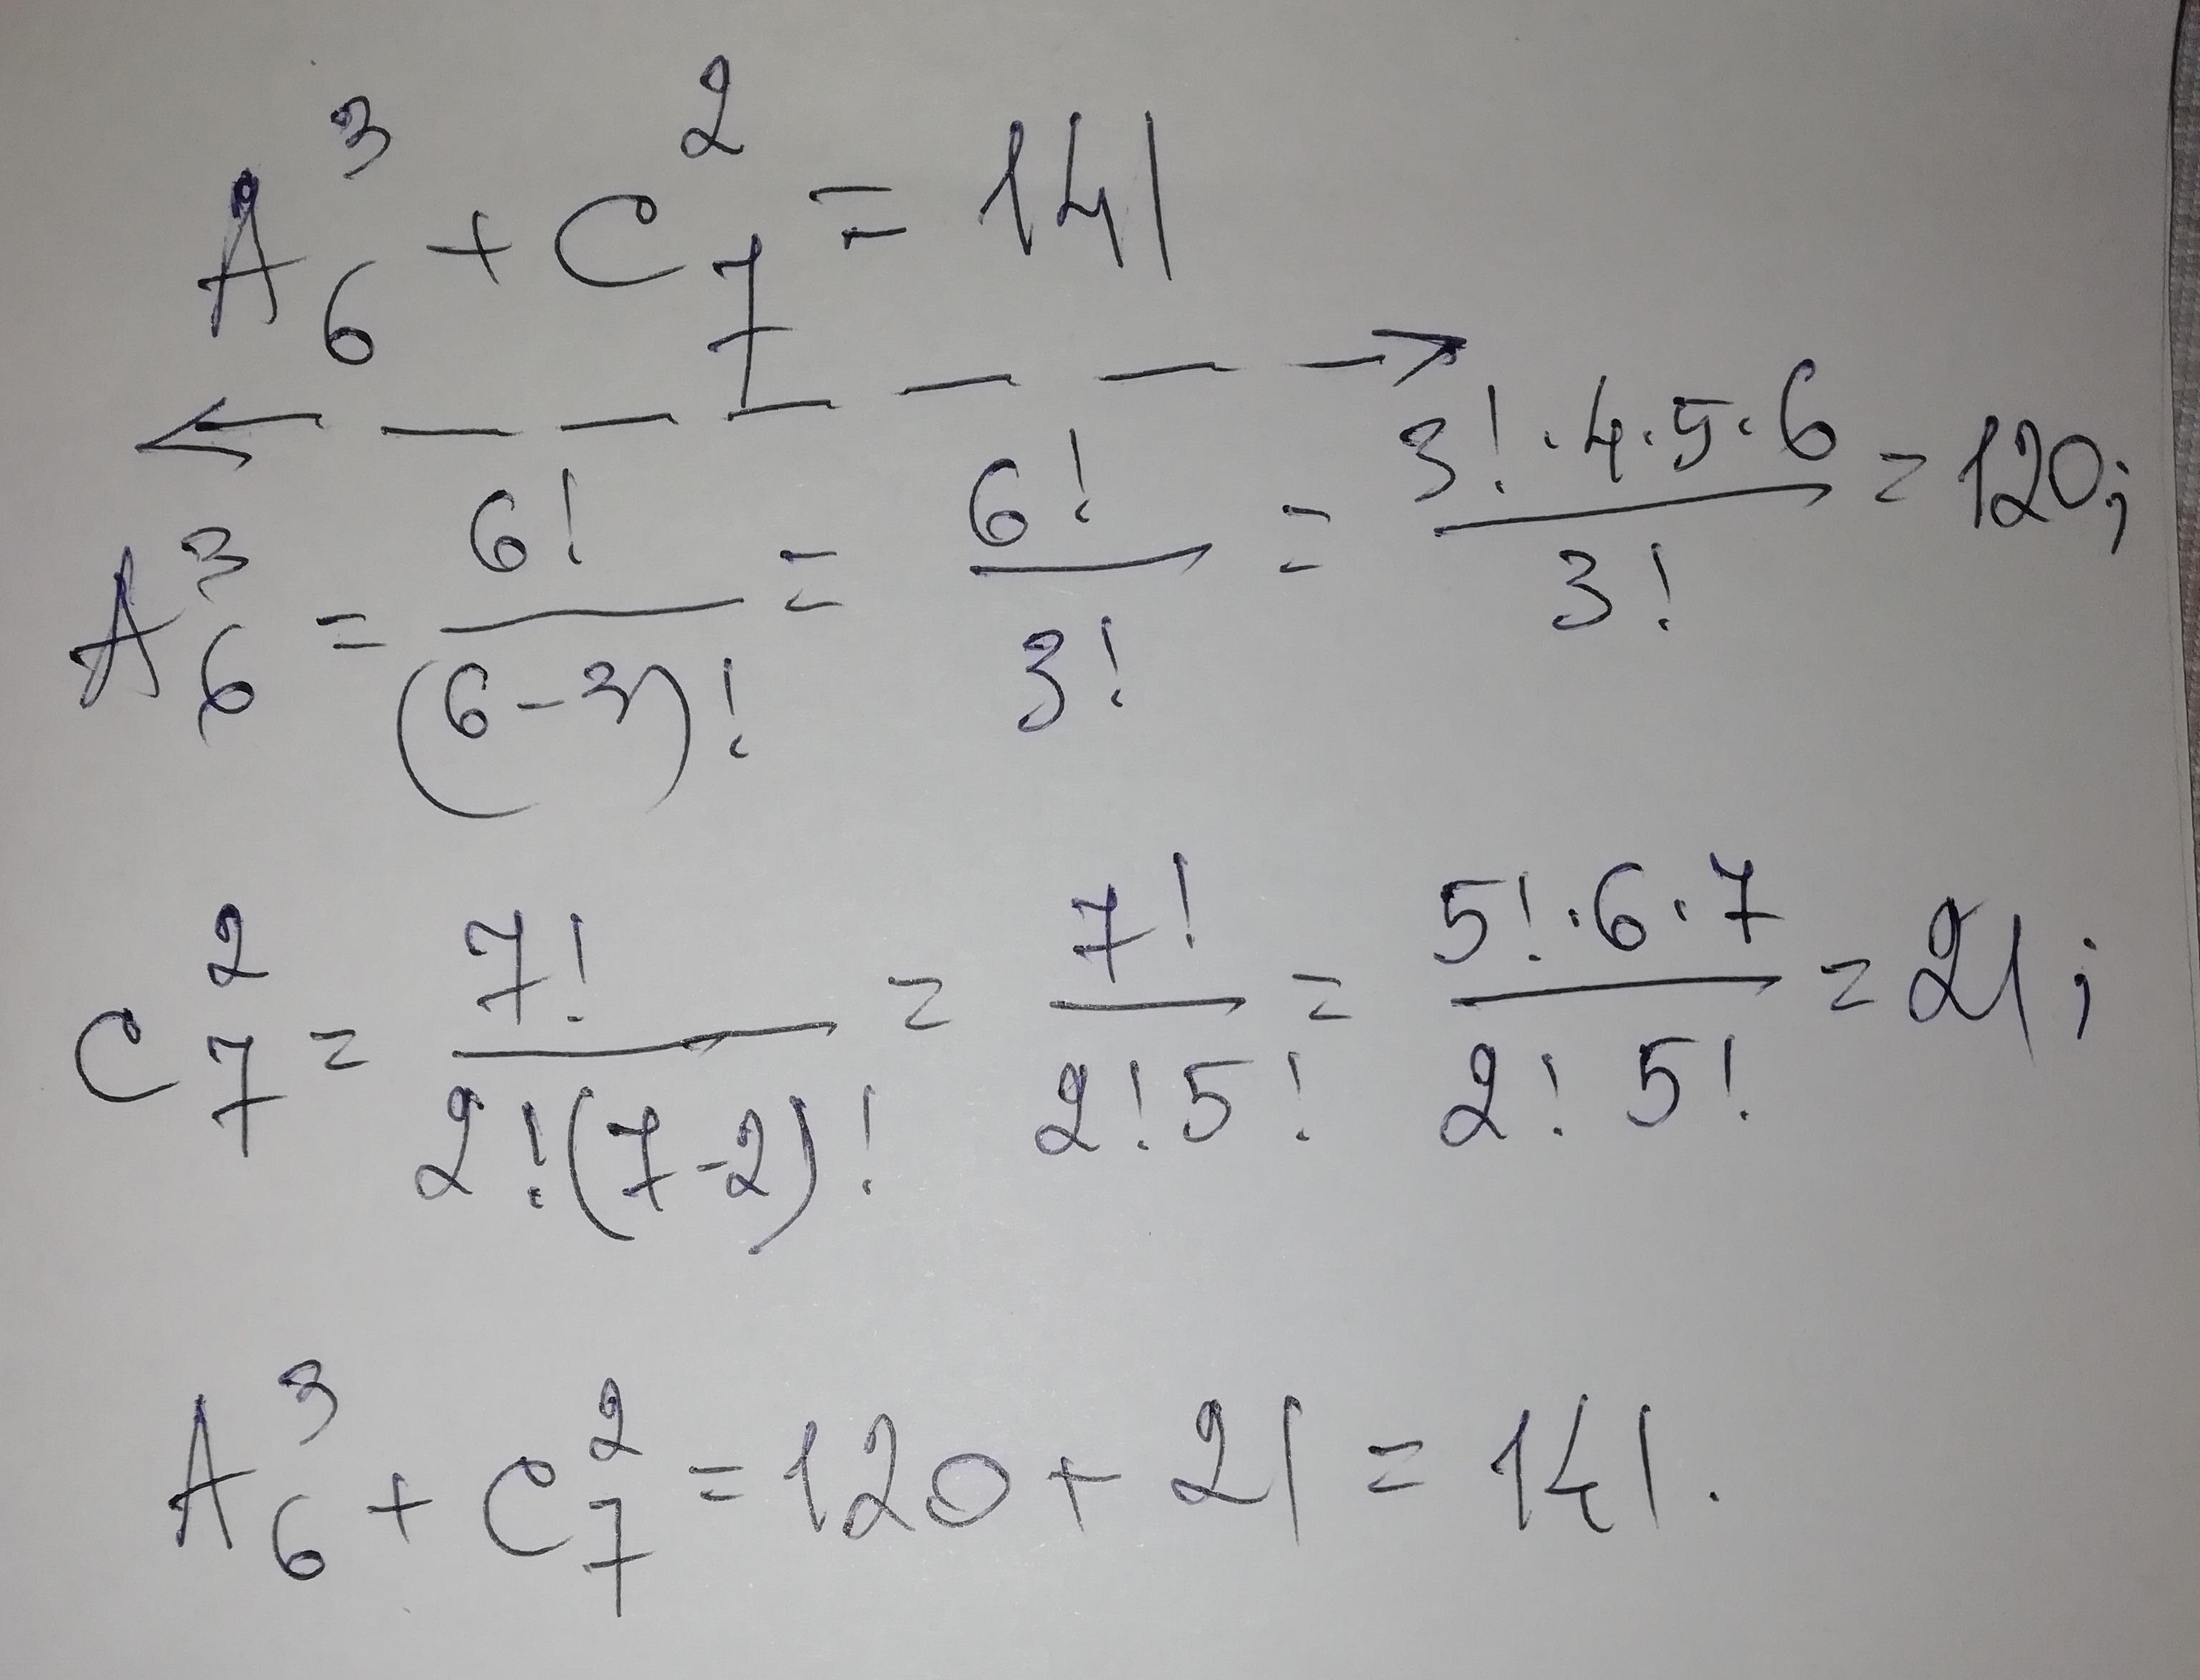 A_6^3 + C_7^2 = 141
A_6^3 = 6!/(6-3)! = 6!/3! = 3!·4·5·6/3! = 120;
C_7^2 = 7!/2!(7-2)! = 7!/2!5! = 5!·6·7/2!5! = 21;
A_6^3 + C_7^2 = 120 + 21 = 141.